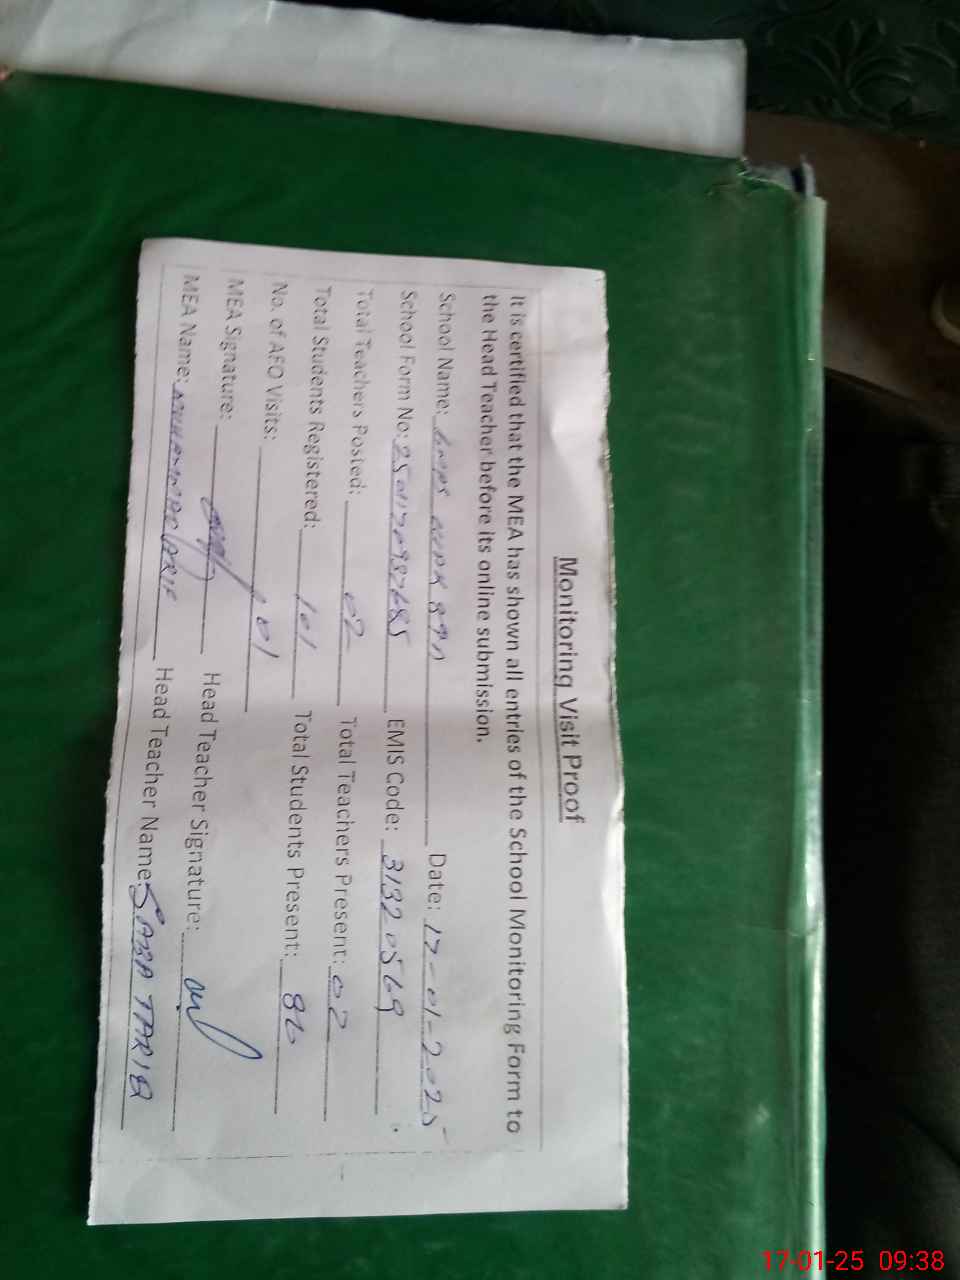 Monitoring Visit Proof
It is certified that the MEA has shown all entries of the School Monitoring Form to
the Head Teacher before its online submission.
School Name: Date: 17-01-2025
School Form No: EMIS Code: 31320569
Total Teachers Posted: 02 Total Teachers Present: 02
Total Students Registered: 101 Total Students Present: 86
No. of AEO Visits: 01
MEA Signature: Head Teacher Signature:
MEA Name: MUHAMMAD ARIF Head Teacher Name: SABA TARIQ
17-01-25 09:38